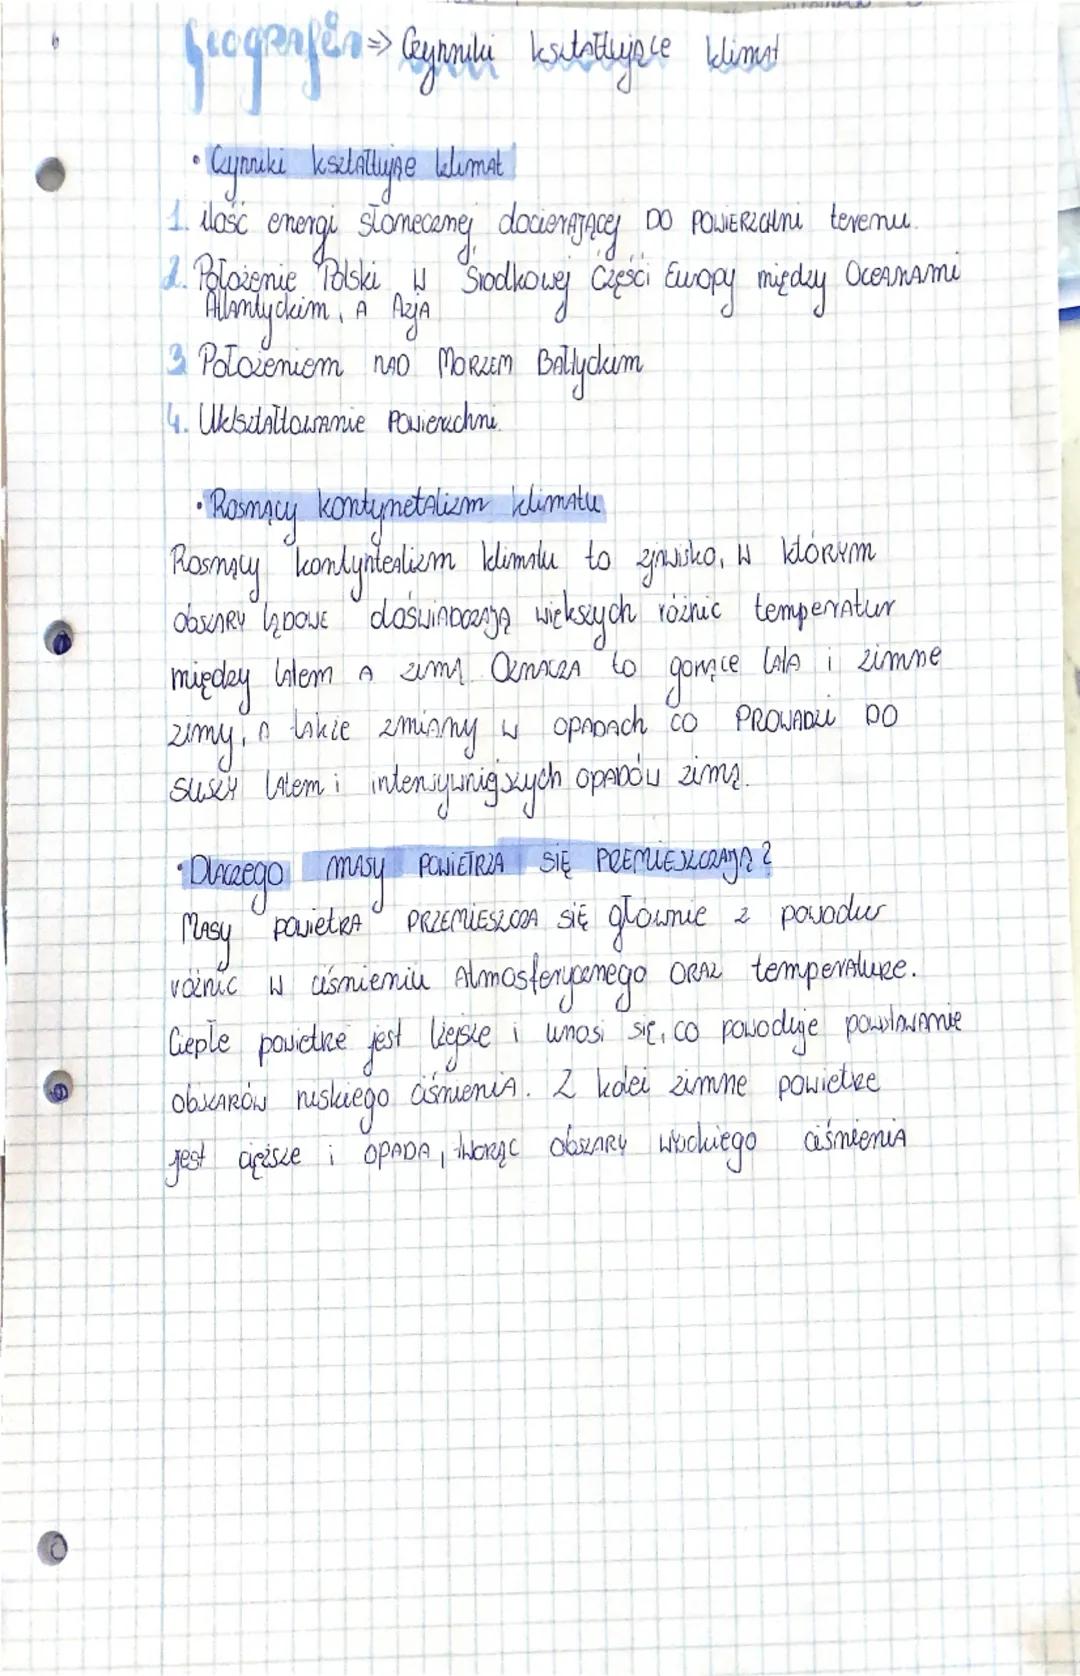 Geografia => Czynniki kształtujące klimat
• Czynniki kształtujące klimat
1. ilość energi słonecznej docierającej DO POWIERZCHNI terenu.
2. Położenie Polski w Środkowej Części Europy między Oceanami
Atlantyckim, A Azją
3. Położeniem NAD MORZEM Bałtyckim
4. Ukształtowanie Powierzchni.
• Rosnący kontynetalizm klimatu
Rosnący kontyntealizm klimatu to zjawisko, w którym
obszary lądowe doświadczają większych różnic temperatur
między latem A zimą. Oznacza to gorące lata i zimne
zimy, a także zmiany w opadach co PROWADZI DO
suszy latem i intensywniejszych opadów zimą.
• Dlaczego masy POWIETRZA SIĘ PRZEMIESZCZAJĄ?
Masy powietrza PRZEMIESZCZA SIĘ głownie z powodur
różnic w ciśnieniu Atmosferycznego ORAZ temperaturze.
Ciepłe powietrze jest lżejsze i unosi się, co powoduje powstawanie
obszarów niskiego ciśnienia. Z kolei zimne powietrze
jest cięższe i OPADA, tworząc obszary wysokiego ciśnienia